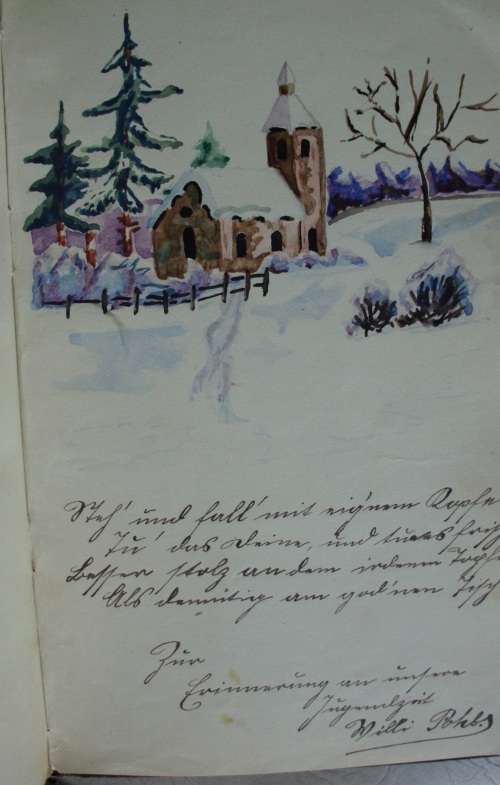 Steh' und fall' mit eig'nem Kopfe
Tu' das Deine, und tu es frisch
Besser stolz an dem irdenen Topfe
Als demütig am gold'nen Tisch
Zur
Erinnerung an unsere
Jugendzeit
Willi